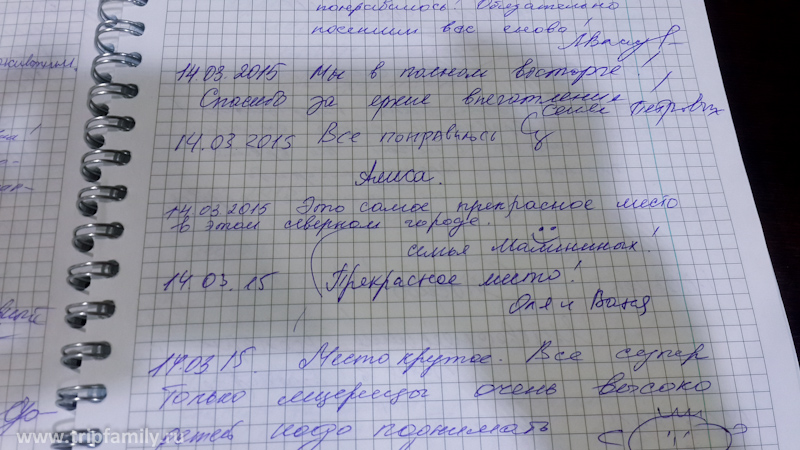 понравилось! Обязательно
посетим вас снова!
14.03.2015 Мы в полном восторге!
Спасибо за яркие впечатления!
Семья Петровых
14.03 2015 Все понравилось
Алиса.
14.03 2015 Это самое прекрасное место
в этом северном городе.
семья Малининых!
14.03.15 Прекрасное место!
Оля и Ваня
14.03 15. Место крутое. Все супер
Только ящерицы очень высоко
детей надо поднимать
www.tripfamily.ru